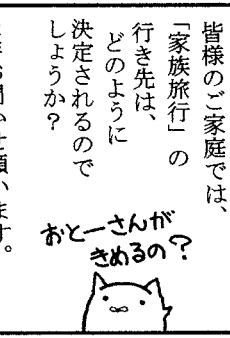 皆様のご家庭では、
「家族旅行」の
行き先は、
どのように
決定されるので
しょうか？
お聞かせ願います。
おとーさんが
きめるの？